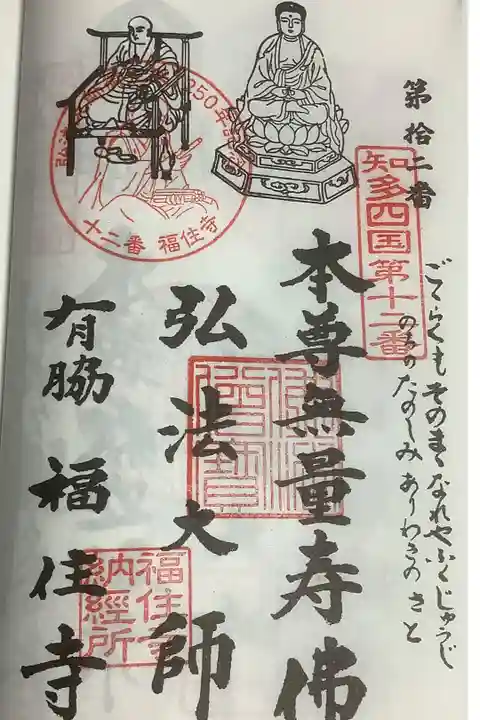 第拾二番
知多四国第十二番
ごくらくも そのまゝ なれや ふくじゅうじ
のちの たのしみ ありわきの さと
本尊無量寿佛
弘法大師
有脇 福住寺
十二番 福住寺
250年
福住寺
納経所